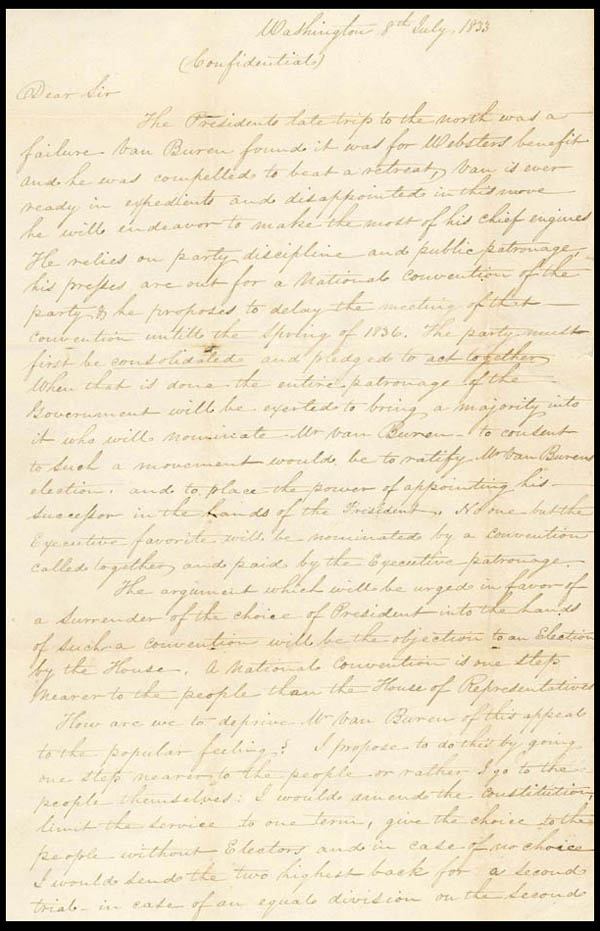 Washington 8th July, 1833
(Confidential)
Dear Sir
The Presidents late trip to the north was a
failure Van Buren found it was for Websters benefit
and he was compelled to beat a retreat, Van is ever
ready in expedients and disappointed in this move
he will endeavor to make the most of his chief engines
He relies on party discipline and public patronage,
his presses are out for a National Convention of the
party & he proposes to delay the meeting of that
convention untill the Spring of 1836. The party must
first be consolidated and pledged to act together
When that is done the entire patronage of the
Government will be exerted to bring a majority into
it who will nominate Mr Van Buren - to consent
to such a movement would be to ratify Mr Van Burens
election. and to place the power of appointing his
successor in the hands of the President. None but the
Executive favorite will be nominated by a convention
called together and paid by the Executive patronage.
The argument which will be urged in favor of
a surrender of the choice of President into the hands
of such a convention will be the objection to an Election
by the House. A National Convention is one step
nearer to the people than the House of Representatives
How are we to deprive Mr Van Buren of this appeal
to the popular feeling? I propose to do this by going
one step nearer to the people or rather I go to the
people themselves: I would amend the constitution,
limit the service to one term, give the choice to the
people without Electors and in case of no choice
I would send the two highest back for a second
trial - in case of an equal division on the second